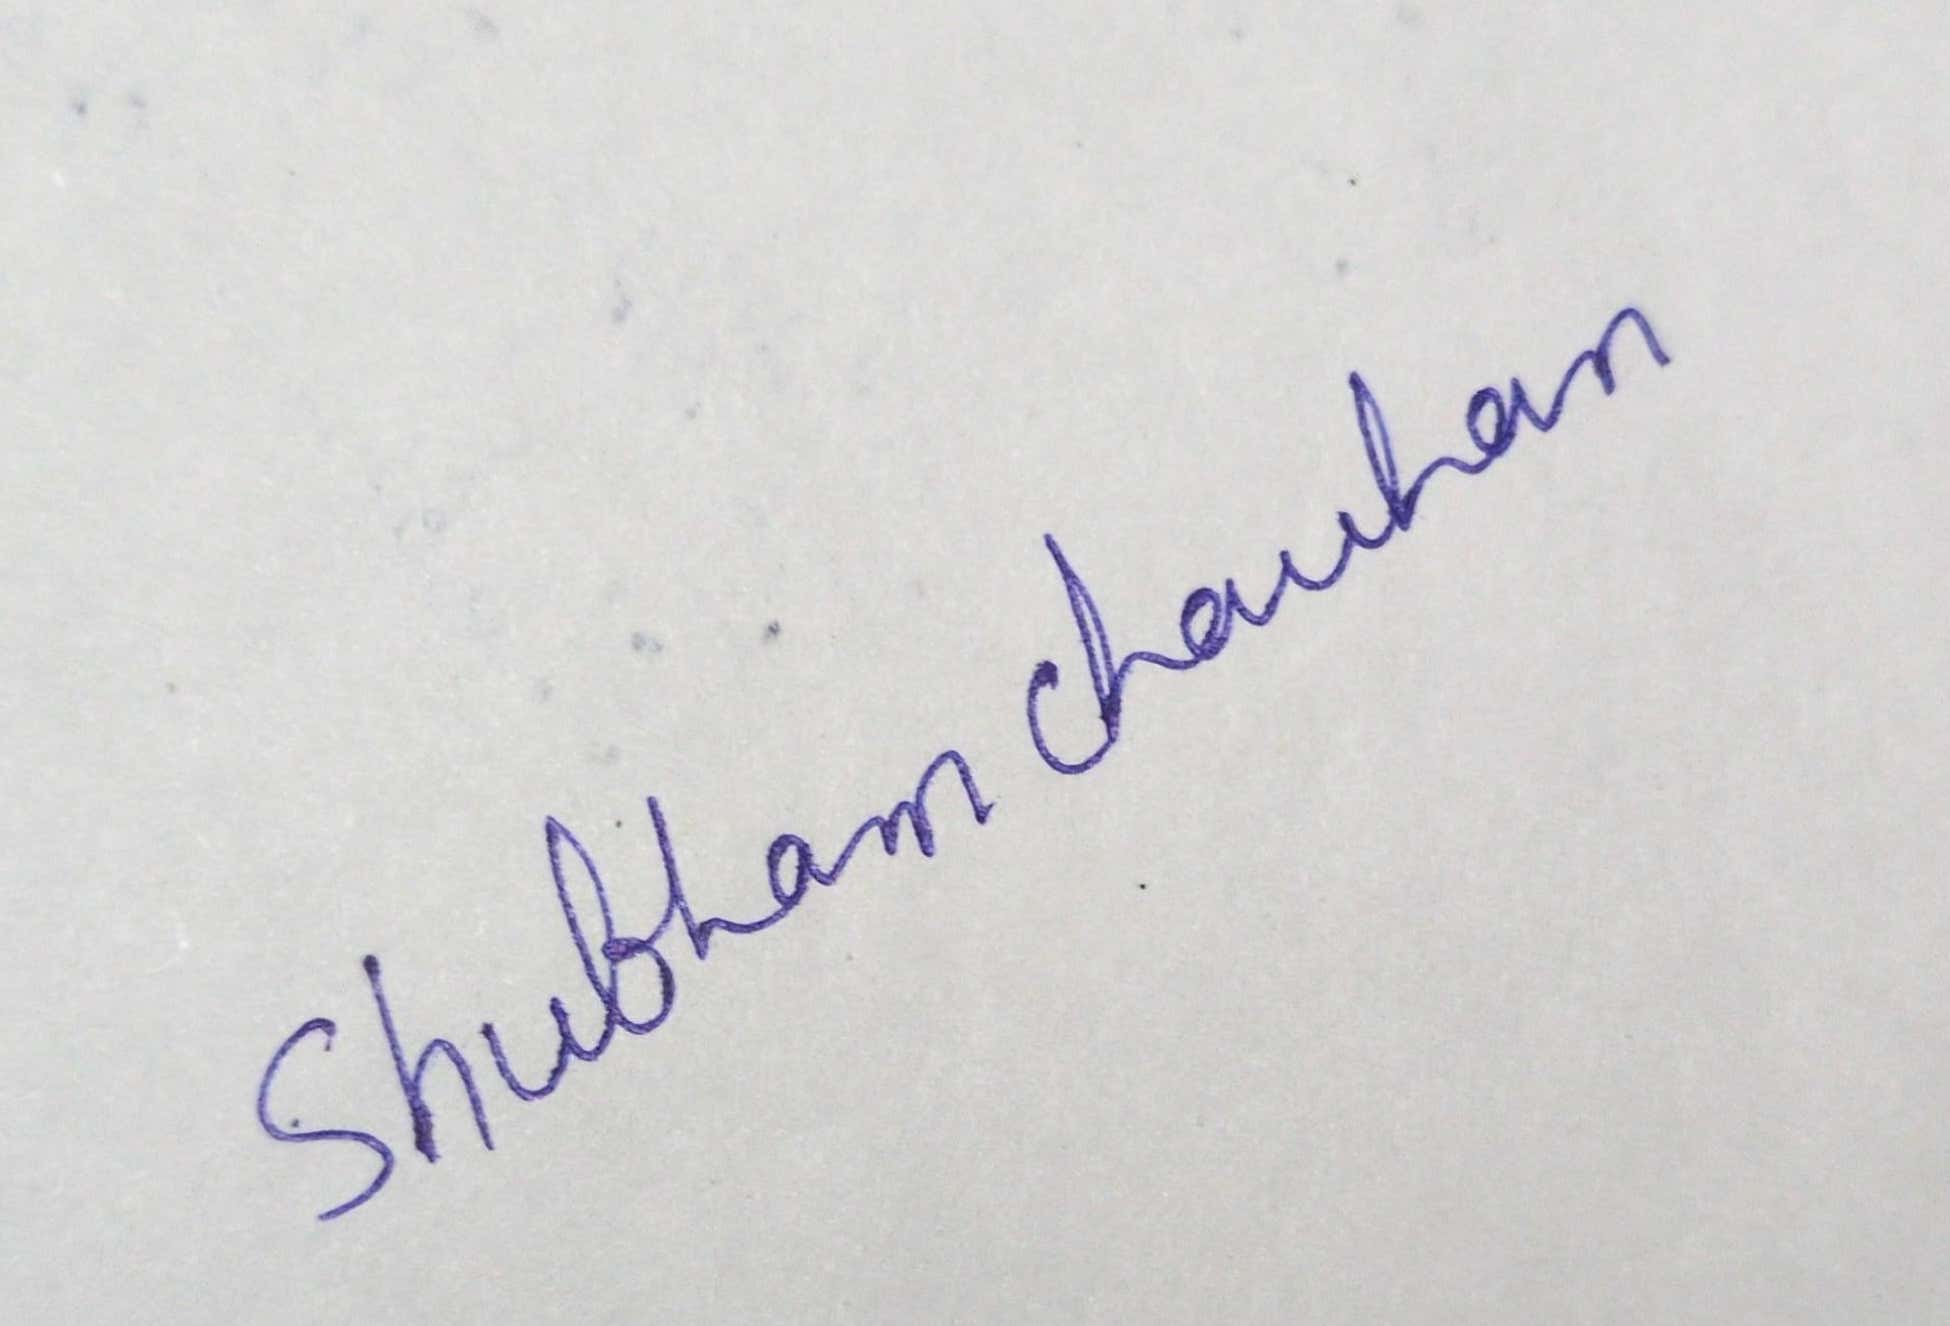 Shubham Chauhan